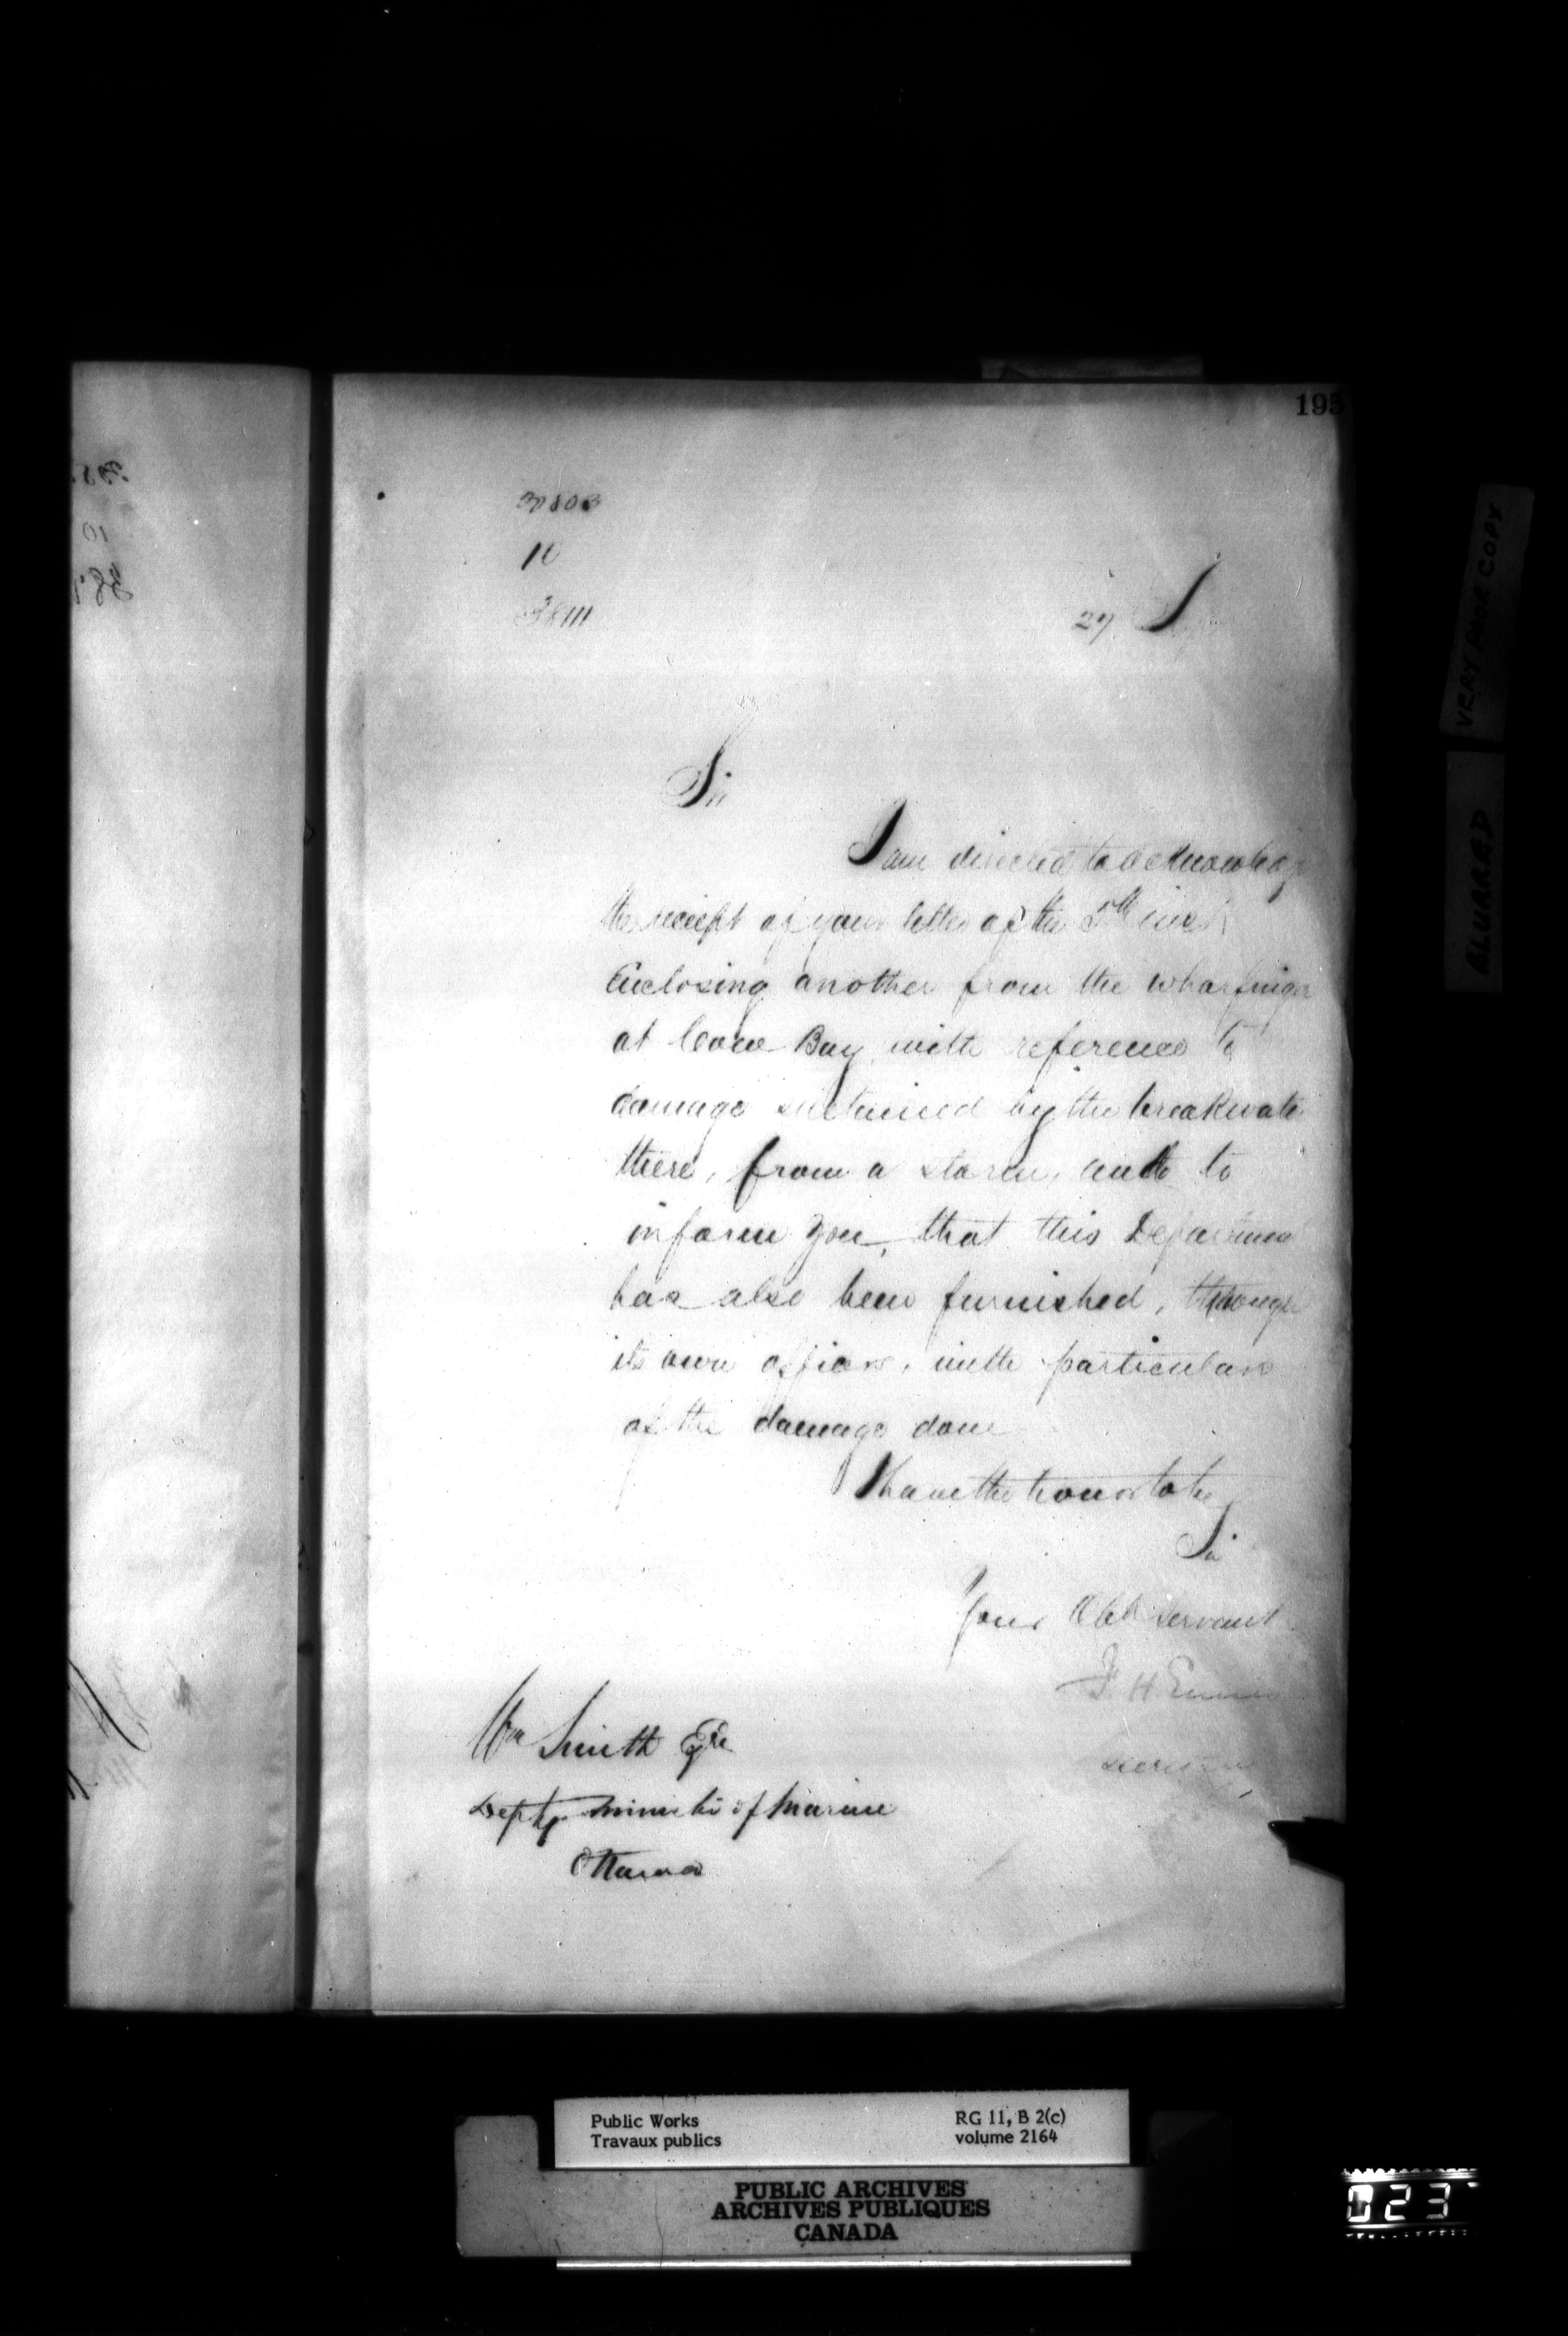 195
10
27
Sir
I am directed to acknowledge
the receipt of your letter of the 5th inst
Enclosing another from the wharfinger
at Cow Bay, with reference to
damage sustained by the breakwater
there, from a storm, and to
inform you, that this Department
has also been furnished, through
its own officers, with particulars
of the damage done
I have the honor to be
Sir
Your Obt Servant
F. H Ennis
Secretary
Wm Smith Esqre
Depty Minister of Marine
Ottawa
VERY POOR COPY
BLURRED
Public Works
Travaux publics
RG 11, B 2(c)
volume 2164
PUBLIC ARCHIVES
ARCHIVES PUBLIQUES
CANADA
023